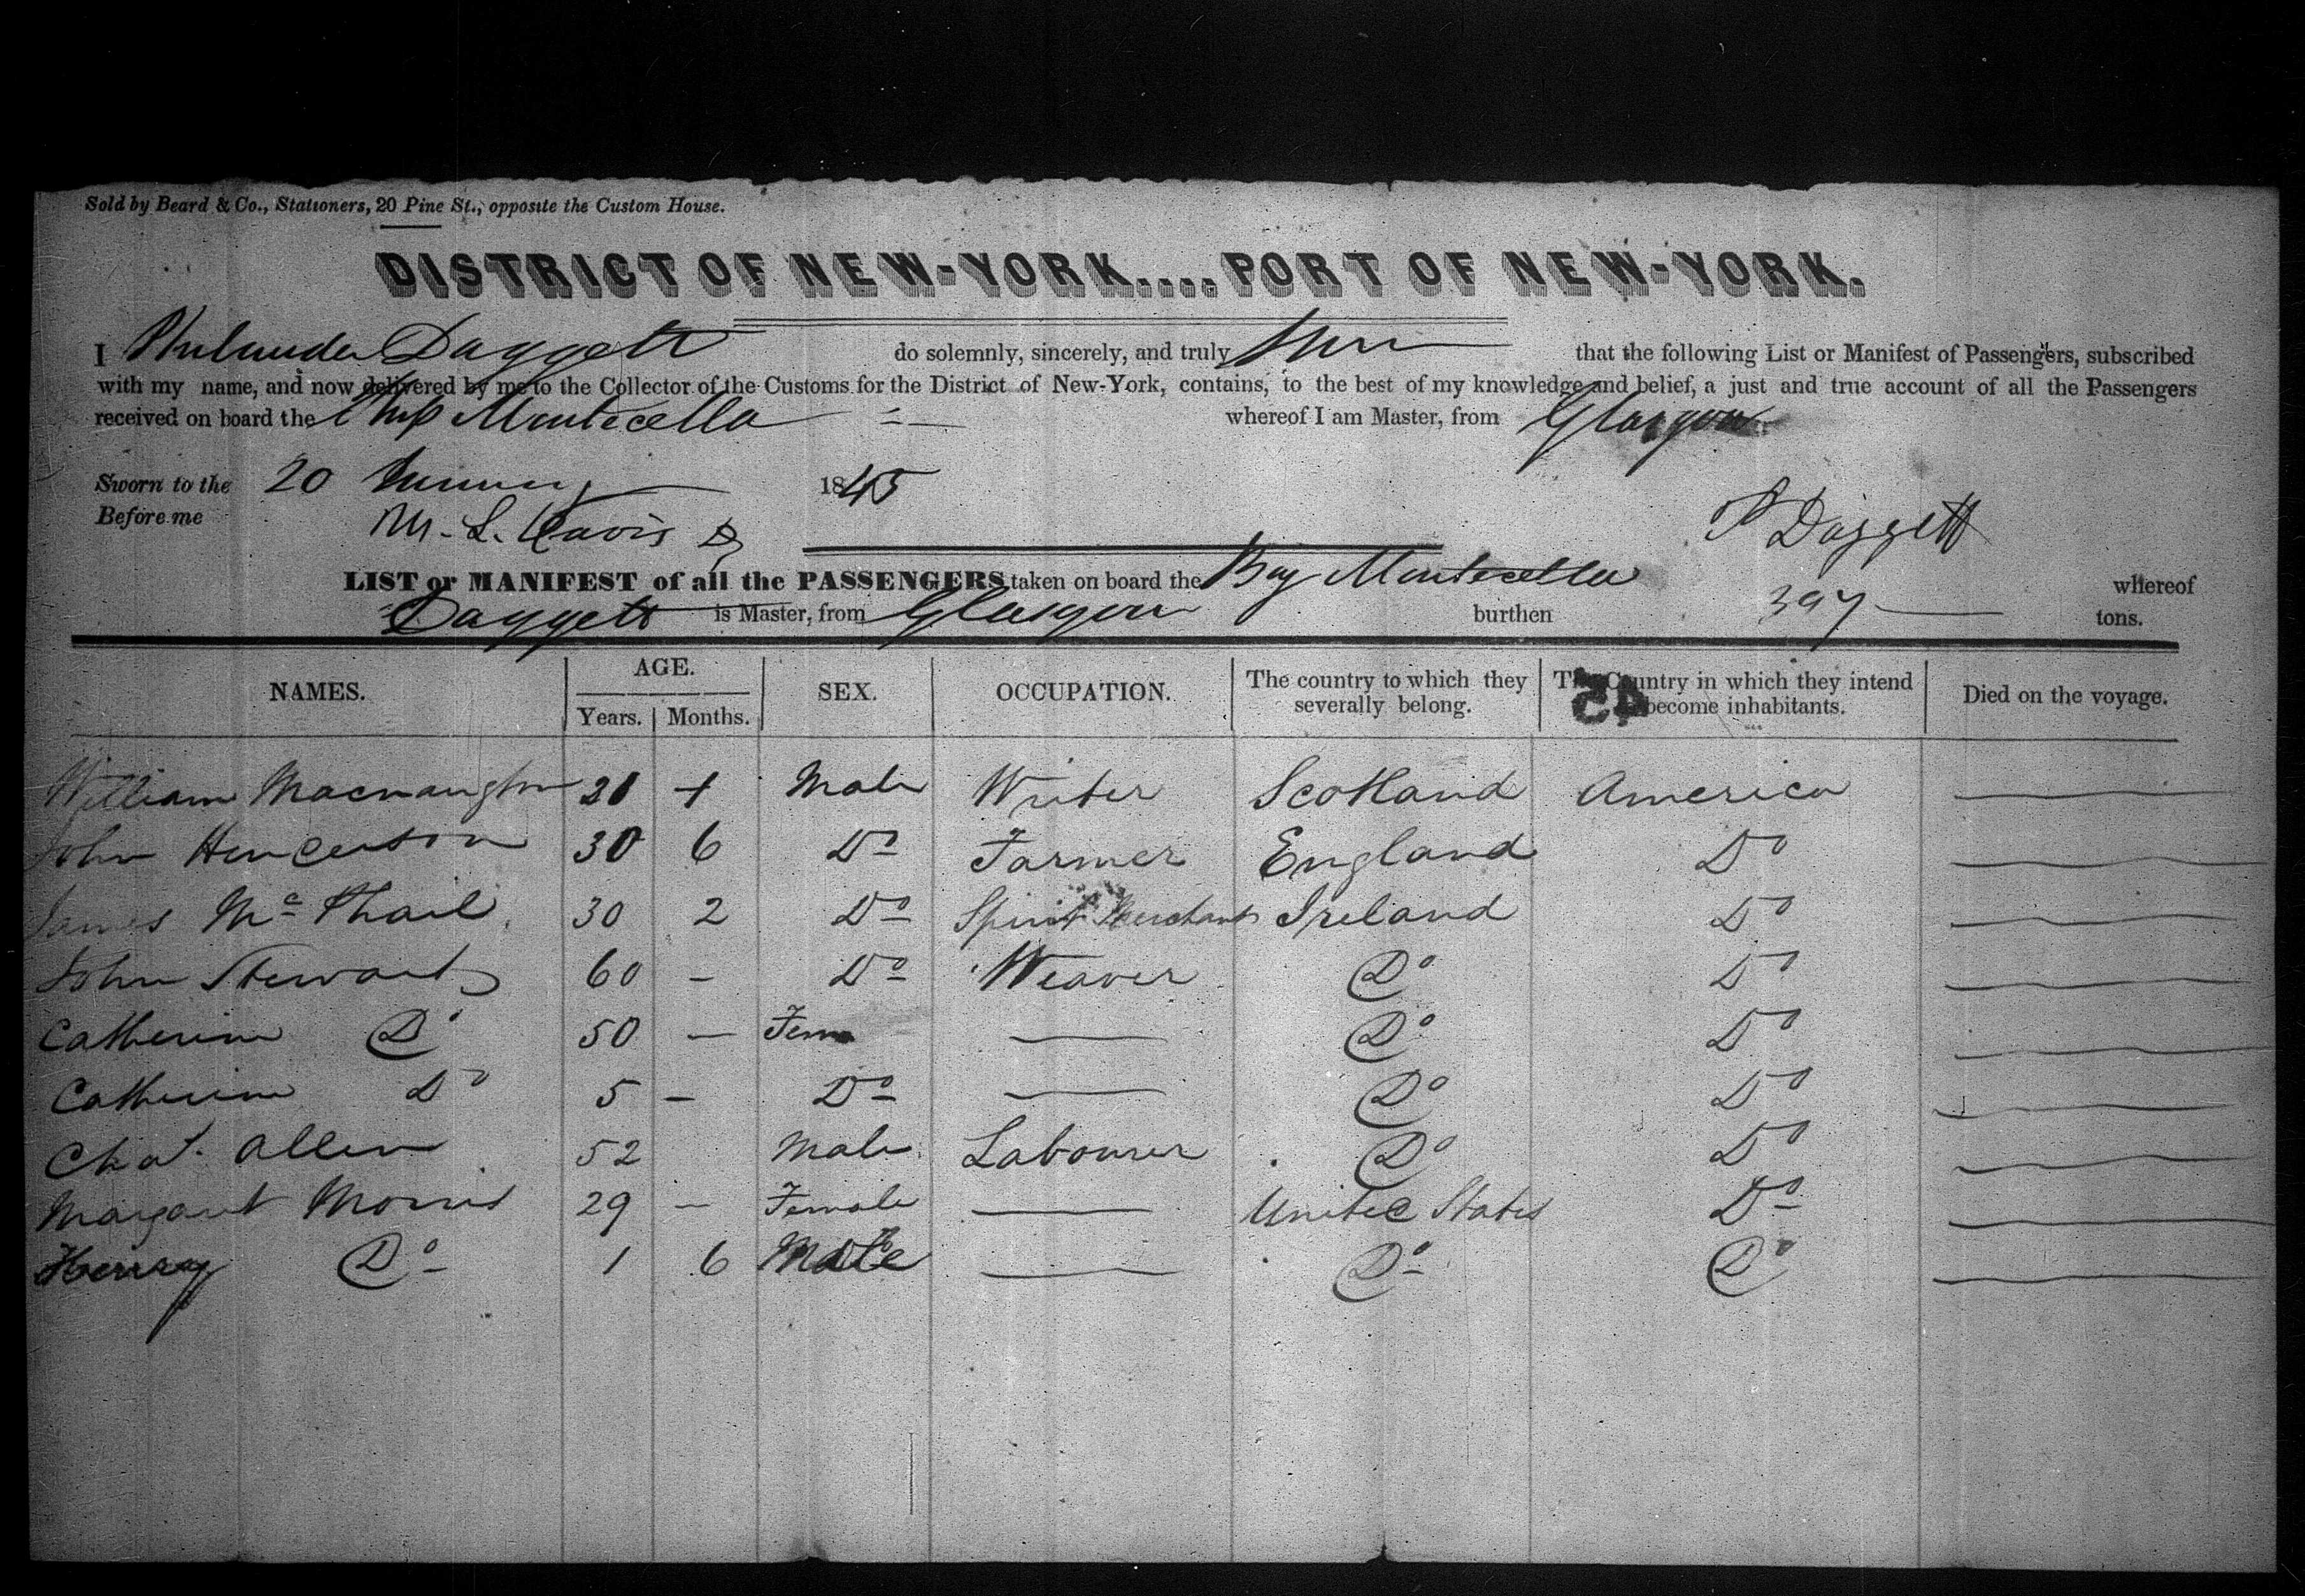 Sold by Beard & Co., Stationers, 20 Pine St., opposite the Custom House.
DISTRICT OF NEW-YORK....PORT OF NEW-YORK.
I Philander Daggett do solemnly, sincerely, and truly that the following List or Manifest of Passengers, subscribed
with my name, and now delivered by me to the Collector of the Customs for the District of New-York, contains, to the best of my knowledge and belief, a just and true account of all the Passengers
received on board the Ship Monticello whereof I am Master, from Glasgow
Sworn to the 20 1845
Before me M. L. Davis P Daggett
LIST or MANIFEST of all the PASSENGERS taken on board the Monticello whereof
Daggett is Master, from Glasgow burthen 397 tons.
NAMES. AGE. Years. Months. SEX. OCCUPATION. The country to which they severally belong. The Country in which they intend become inhabitants. Died on the voyage.
45
William Macnaughton 21 Male Writer Scotland America
John Henderson 30 6 Do Farmer England Do
James Mc Phail 30 2 Do Spirit Merchant Ireland Do
John Stewart 60 - Do Weaver Do Do
Catherine Do 50 - Fem Do Do
Catherine Do 5 - Do Do Do
Chas. Allen 52 Male Labourer Do Do
Margaret Morris 29 - Female United States Do
Henry Do 1 6 Male Do Do